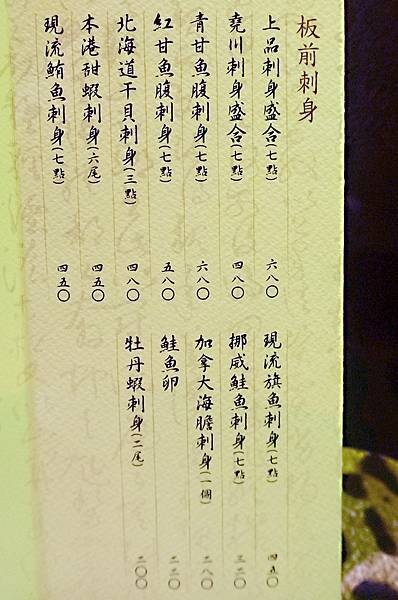 板前刺身
上品刺身盛合(七點) 六八〇
堯川刺身盛合(七點) 四八〇
青甘魚腹刺身(七點) 六八〇
紅甘魚腹刺身(七點) 五八〇
北海道干貝刺身(三點) 四八〇
本港甜蝦刺身(六尾) 四五〇
現流鮪魚刺身(七點) 四五〇
現流旗魚刺身(七點) 四五〇
挪威鮭魚刺身(七點) 三二〇
加拿大海膽刺身(一個) 二八〇
鮭魚卵 二二〇
牡丹蝦刺身(二尾) 二〇〇